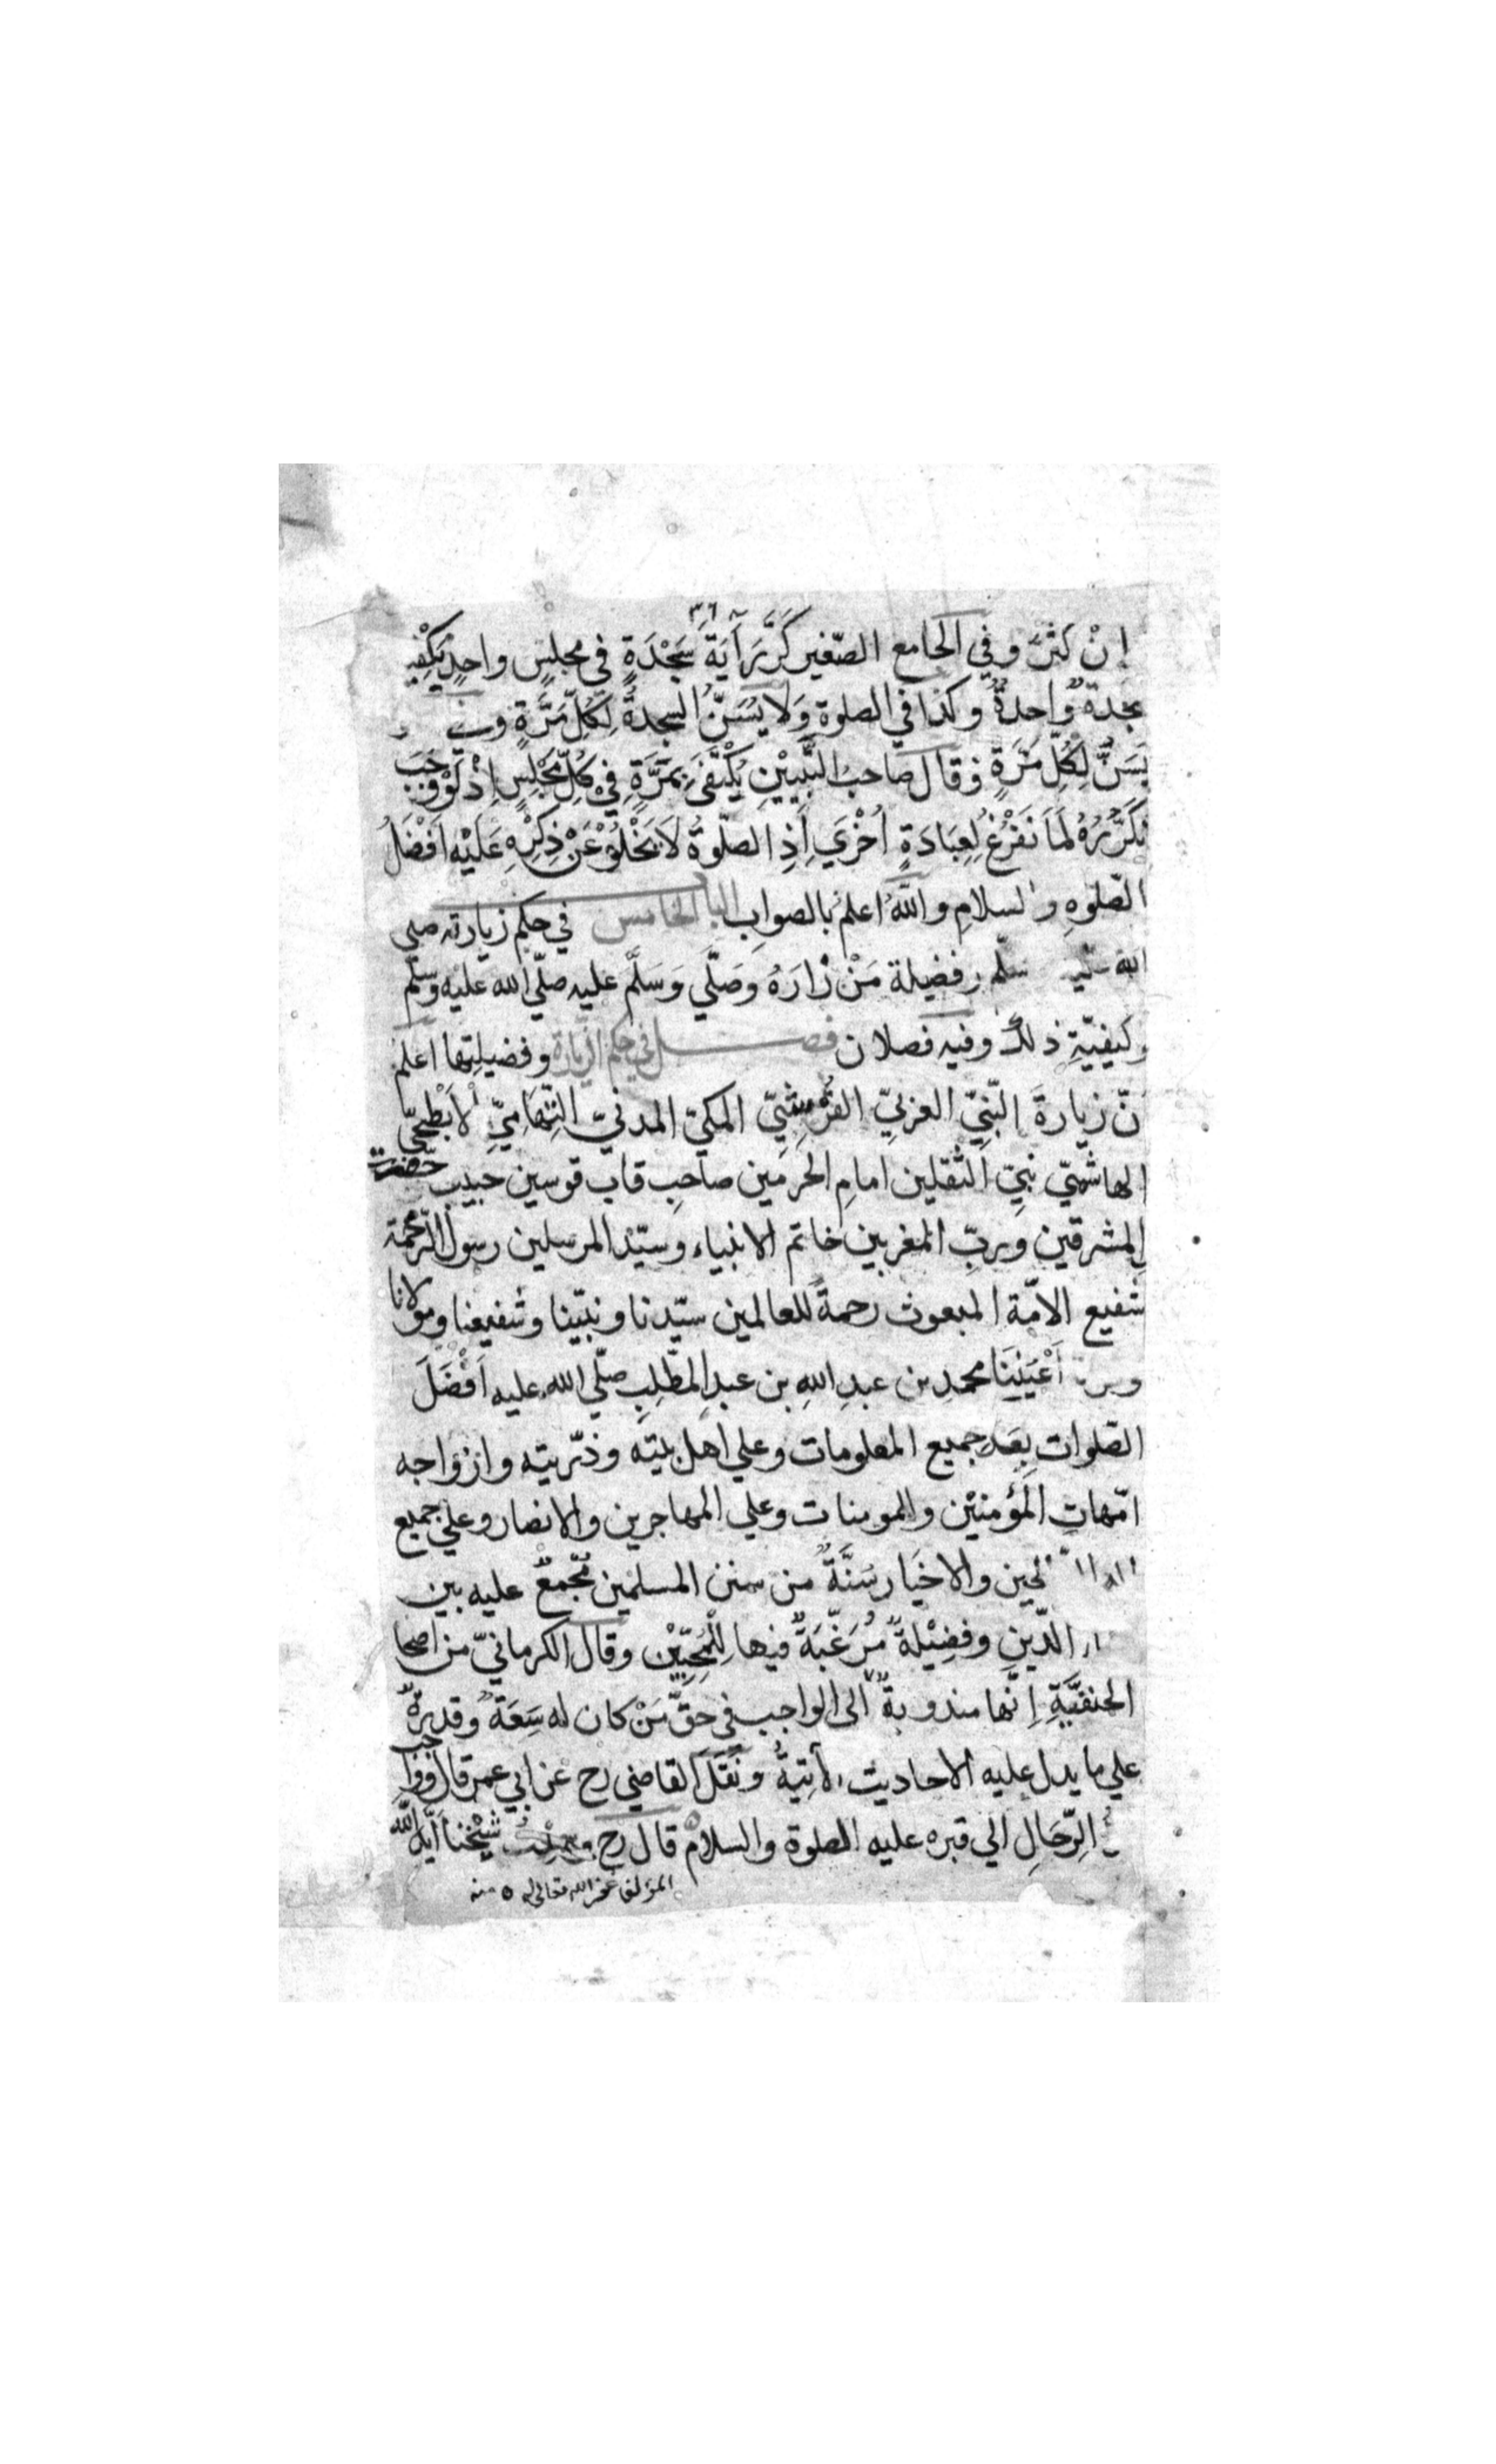 ٣٦
إنْ كَثُرَ وفي الجامع الصّغير كَرَّرَ آيَةَ سَجْدَةٍ في مجلسٍ واحدٍ يَكْفِيه
سجدةٌ واحدةٌ وكذا في الصلوة وَلا يُسَنُّ السجدةُ لِكُلِّ مَرَّةٍ
يسَنُّ لِكُلِّ مَرَّةٍ وقال صاحبُ التَّبْيِيْنِ يُكْتَفَى بِمَرَّةٍ فِيْ كُلِّ مَجْلِسٍ اِذْ لَوْ وَجَبَ
تكَرُّرُهُ لَمَا نَفْرُغُ لِعِبَادَةٍ اُخْرَي اِذِ الصّلوةُ لاَ يَخْلُوْ عَنْ ذِكْرِهِ عَلَيْهِ اَفْضَلُ
الصّلوهِ والسلامِ واللهُ اعلمُ بالصوابِ الباب الخامس في حكم زيارته صلي
الله سلّم وفضيلة مَنْ زَارَهُ وَصَلَّي وَسَلَّمَ عليه صلّي الله عليه وسلّم
وكيفيّةِ ذلك وفيه فصلان فصل في حكم الزيارة وفضيلتِها اعلم
نّ زيارةَ النّبيِّ العربيِّ القُرَشِيِّ المكيّ المدنيّ التِّهَامِيِّ الاَبْطَحيّ
الهاشميّ نبيِّ الثّقلين امامِ الحَرَمَين صاحبِ قاب قوسين حبيب حضرت
المشرقين وربِّ المغربين خاتم الانبياء وسيّد المرسلين رسول الرّحمة
شفيع الامّة المبعوث رحمةً للعالمين سيّدنا ونبيّنا وشفيعنا ومولانا
أَعْيُنِنَا محمدِ بن عبدِ اللهِ بن عبدِ المطّلِبِ صلّي الله عليه اَفْضَلَ
الصّلوات بِعَدِ جميع المعلومات وعلي اهل بيته وذرّيته وازواجه
امّهاتِ المؤمنيْن والمومنات وعلي المهاجرين والانصار وعلي جميع
لحين والاخيار سُنَّةٌ من سنن المسلمين مُجْمعٌ عليه بين
الدّينِ وفضِيْلةٌ مُرَغَّبَةٌ فيها لِلْمُحِبِّيْن وقال الكرمانيّ من اصحا
الحنفيّةِ إنّها مندوبةٌ الي الواجب في حَقِّ مَنْ كان له سَعَةٌ وقدرةٌ
علي ما يدل عليه الاحاديث الآتيةُ ونَقَلَ القاضي رح عن ابي عمر قال وَاجب
الرّحَالِ الي قبره عليه الصلوة والسلام قال رح شيْخنا ايّده اللّٰه
المؤلف غفر الله تعالى له ٥ منه